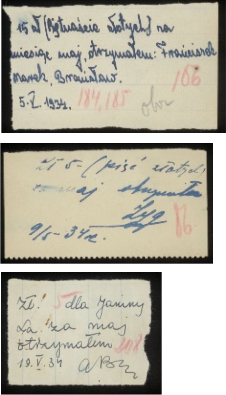 15 zł (piętnaście złotych) na
miesiąc maj, otrzymałem: Franciszek
Marek, Bronisław.
166
5.V.1934.
184,185
Zł 5- (pięć złotych)
maj otrzymałem
9/5-34r.
86
Zł. 5 dla Janiny
za maj
otrzymałem
19.V.34